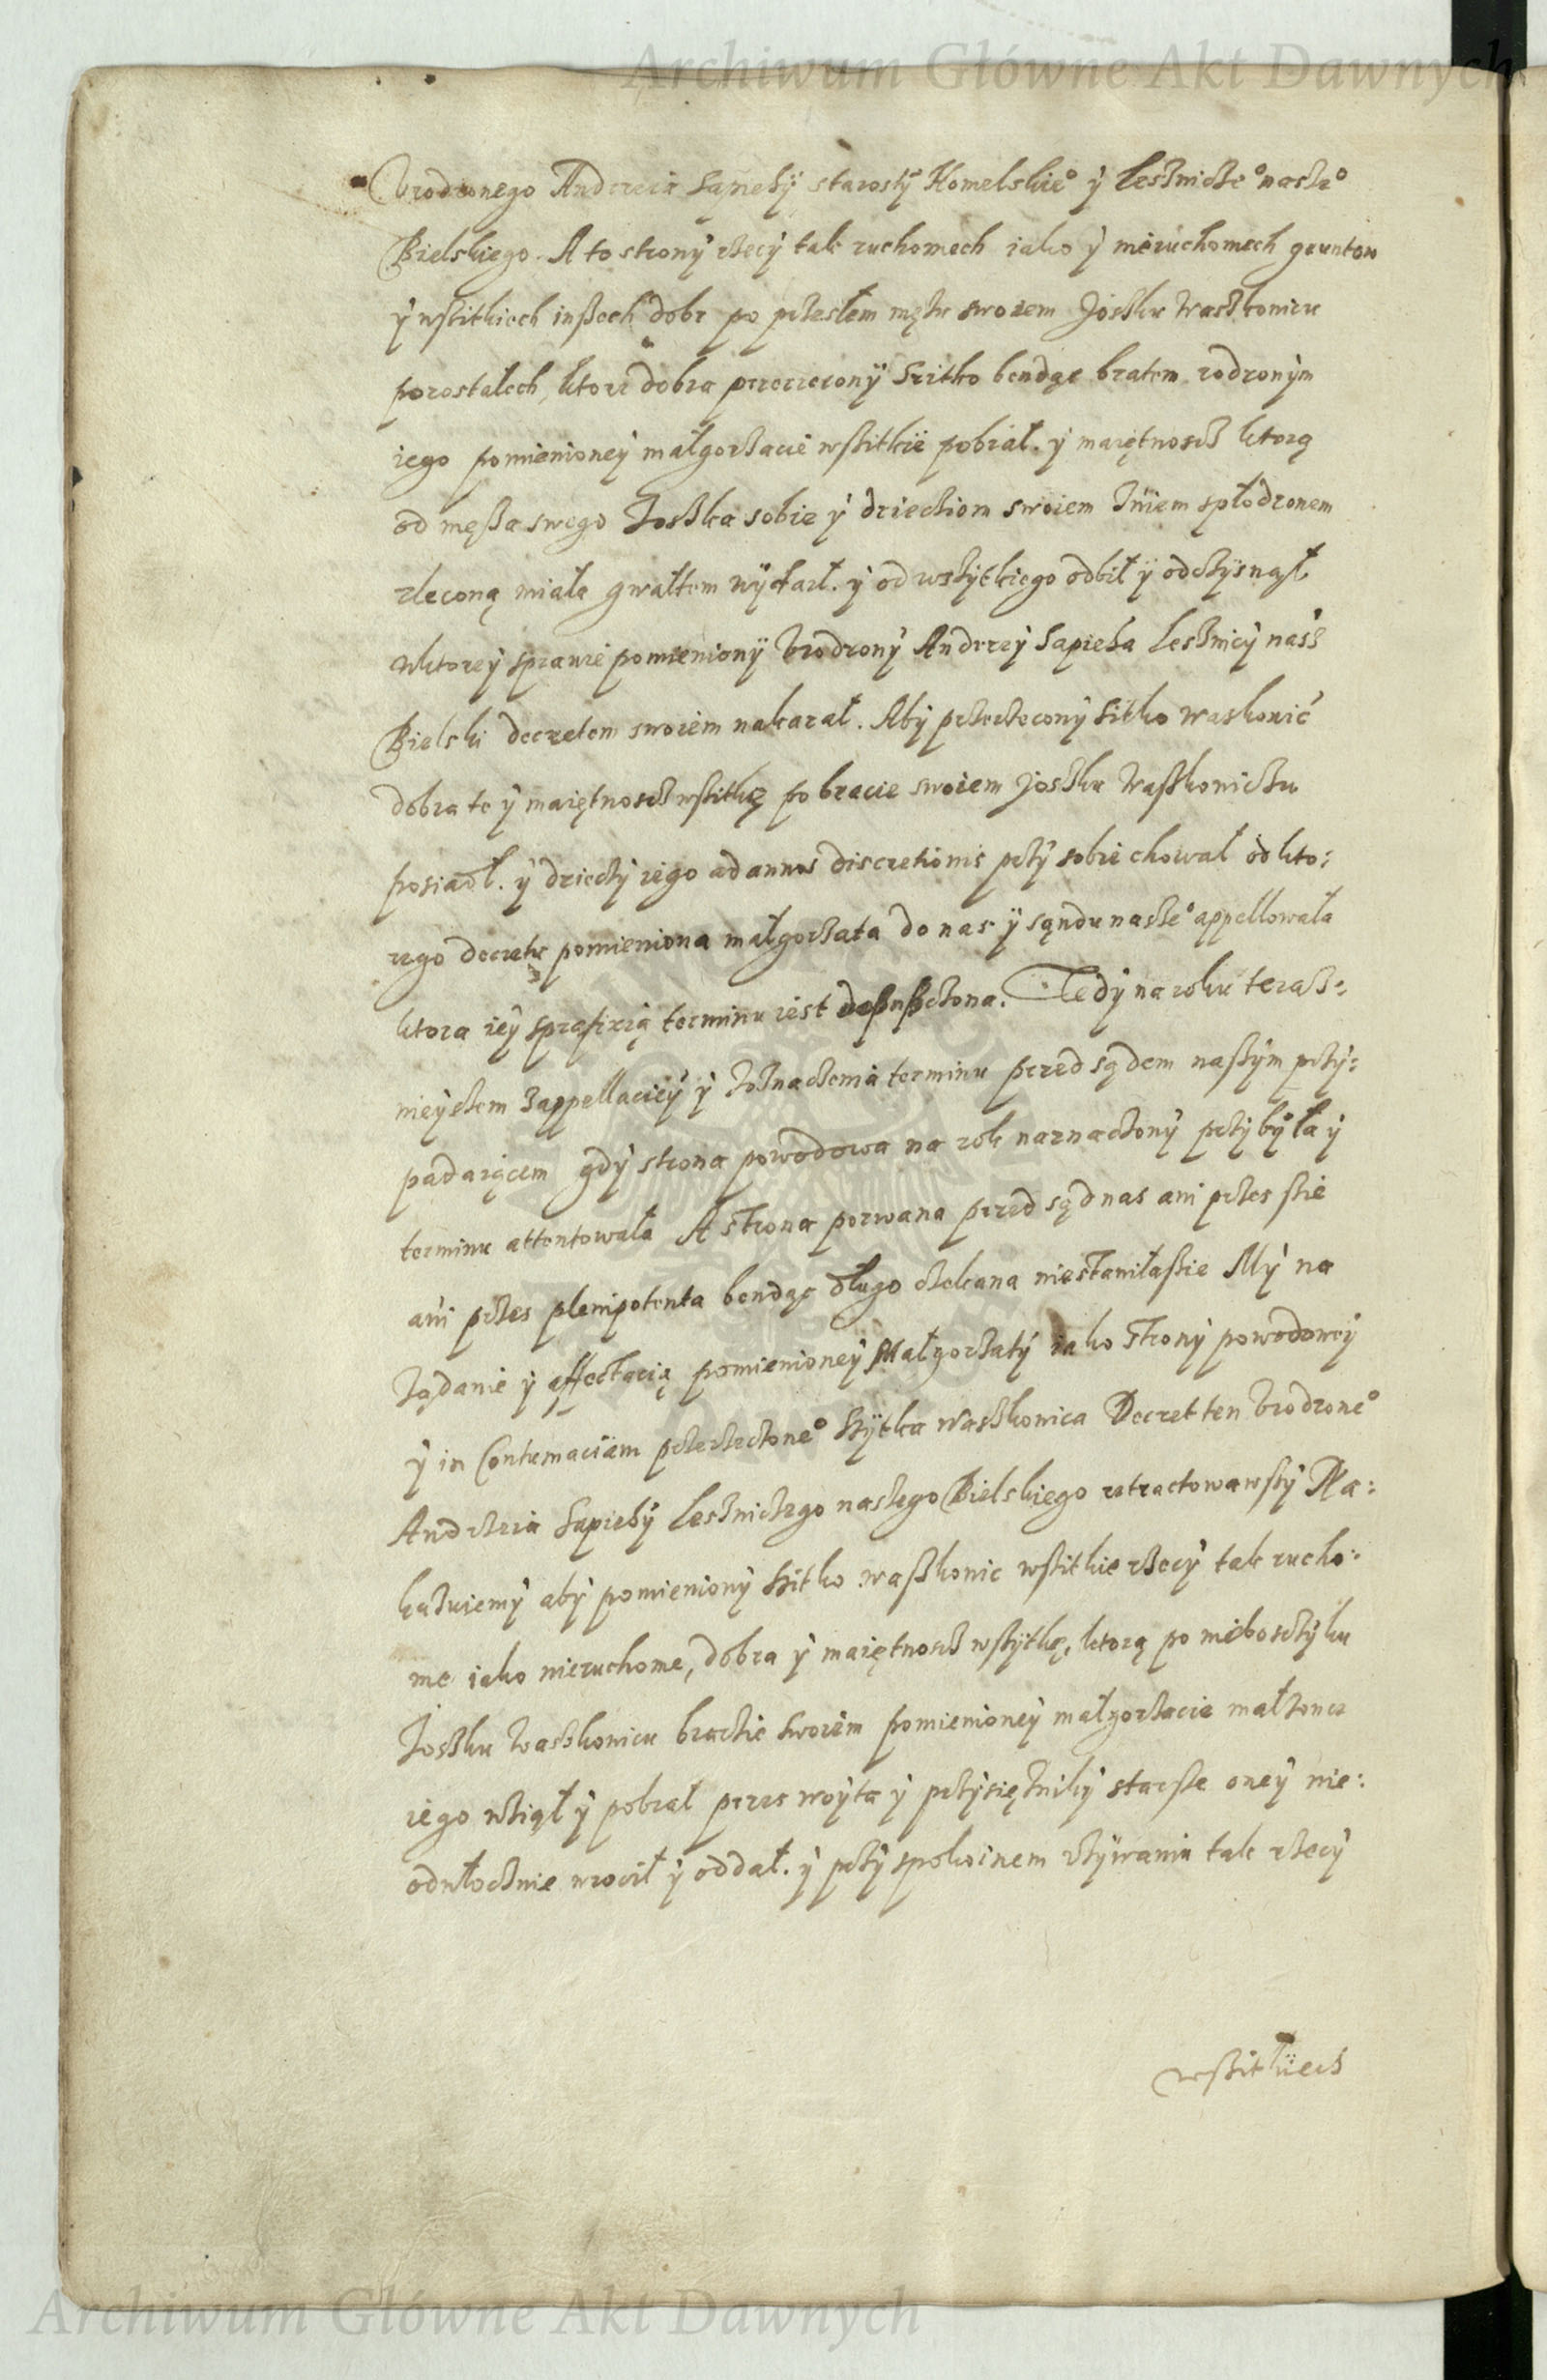 Archiwum Główne Akt Dawnych
Vrodzonego Andrzeia Sapiehÿ starostÿ Homelskie° ÿ lesznicze° nasze°
Bielskiego. A to stronÿ rzecÿ tak ruchomech iako ÿ nieruchomech gruntow
ÿ wszitkiech inßech dobr po przesłem mężu swoiem Joszku Waszkonicu
pozostałech, ktore dobra przerzeczonÿ Szitko bendąc bratem rodzonÿm
iego pomienioneÿ małgorzacie wszitkie pobrał. ÿ maiętnoscz ktorą
od męßa swego Joszka sobie ÿ dzieciom swoiem zniem spłodzonem
zleconą miała gwałtem wÿdarł. ÿ od wszÿtkiego odbił ÿ odczÿsnął
wktoreÿ sprawie pomienionÿ Vrodzonÿ Andrzeÿ Sapieha leszniczÿ nasz
Bielski decretem swoiem nakazał. Abÿ przerzeconÿ Sitko waskonić
dobra te ÿ maiętnoscz wszitkę po bracie swoiem Joszku Waßkoniczu
posiadł. ÿ dzieczÿ iego ad annos discretionis przÿ sobie chował od kto:
rego decretu pomieniona małgorzata do nas ÿ sąndu nasze° appellowała
ktora ieÿ sprafixią terminu iest depußczona. Tedÿ na roku terasz:
nieÿszem z appellacieÿ ÿ zoznaczenia terminu przed sądem naszÿm przÿ:
padaiącem gdÿ strona powodowa na rok naznaczonÿ przÿbÿła ÿ
terminu attentowała A strona pozwana przed sąd nas ani przes sie
ani przes plenipotenta bendąc długo czekana niestaniłaßie Mÿ na
żądanie ÿ affectacią pomienioneÿ Małgorzatÿ iako stronÿ powodoweÿ
ÿ in Contumaciam przerzeczone° Szÿtka Waszkonica Decret ten Vrodzone°
Andrzeia Sapiehÿ leszniczego naszego Bielskiego retractowawszÿ Na:
kazuiemÿ abÿ pomienionÿ Szitko waßkonic wszitkie rzecÿ tak rucho:
me iako nieruchome, dobra ÿ maiętnoscz wszÿtkę, ktorą po nieboszczÿku
Joszku Waszkonicu braczie swoiem pomienioneÿ małgorzacie małżonce
iego wziął ÿ pobrał przez woÿta ÿ przÿsiężnikÿ starsze oneÿ nie:
odwłocznie wrocił ÿ oddał. ÿ przÿ spokoinem vżÿwaniu tak rzecÿ
wszitkiech
Archiwum Główne Akt Dawnych